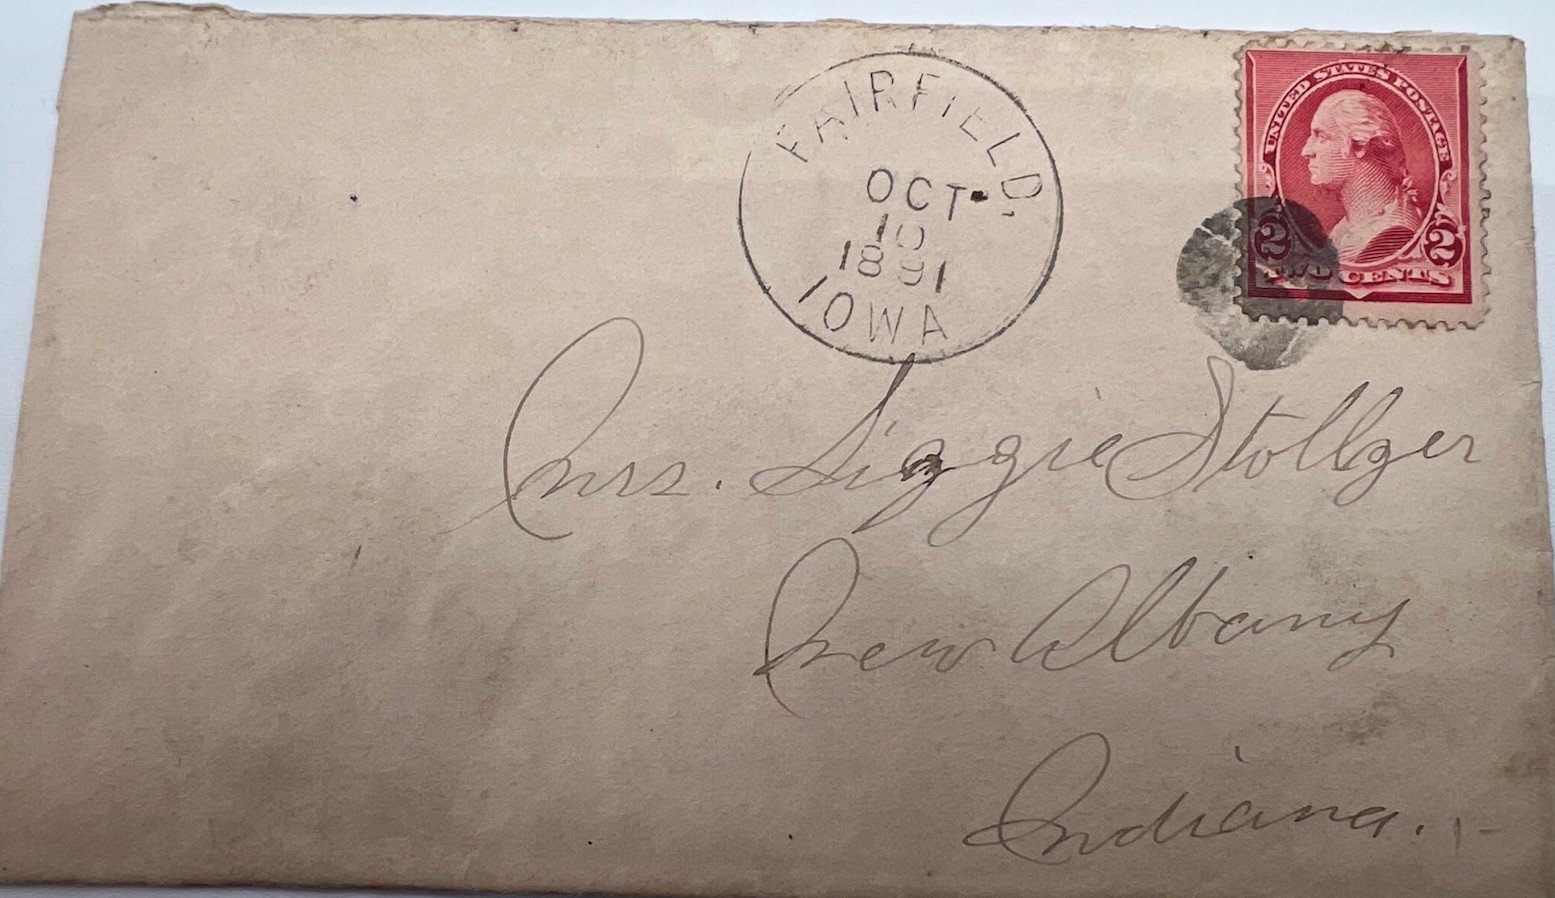 FAIRFIELD,
OCT
10
1891
IOWA
UNITED STATES POSTAGE
2 2
TWO CENTS
Mrs. Lizzie Stollzer
New Albany
Indiana.